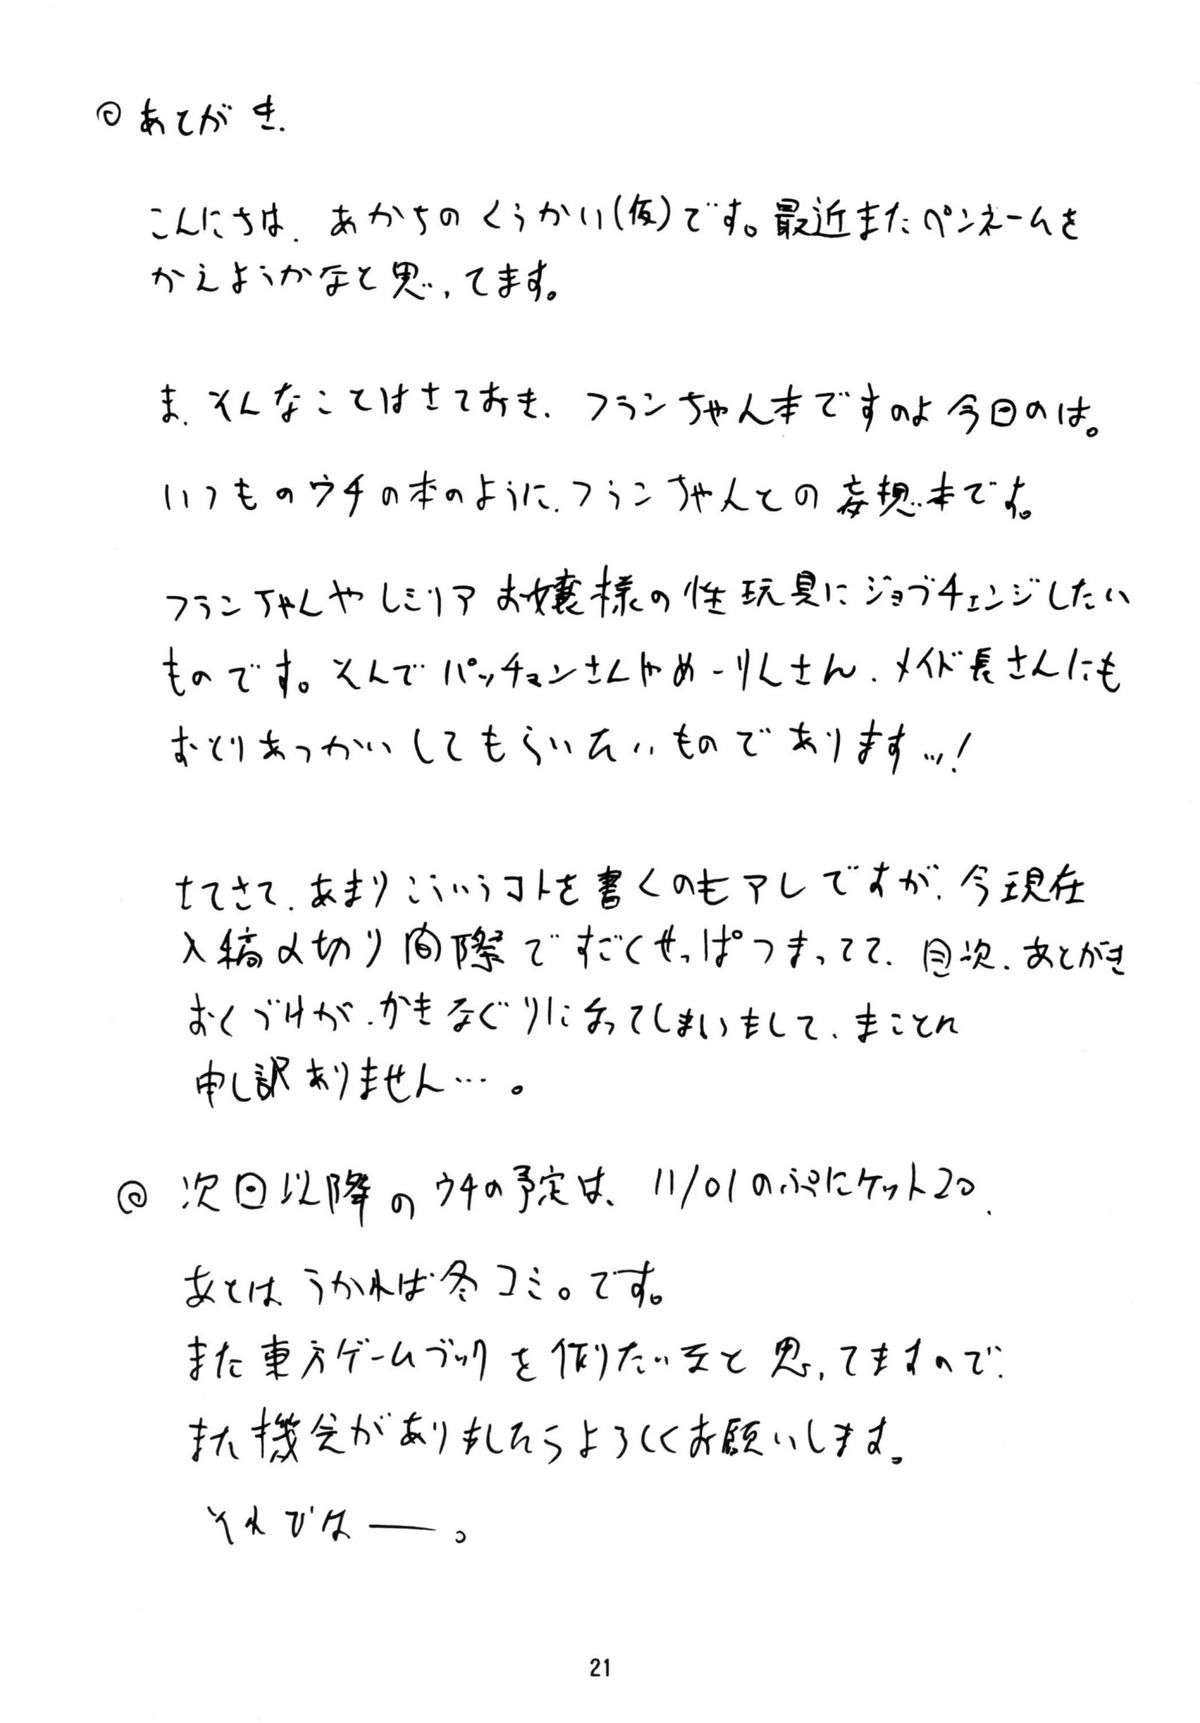 ◎あとがき.
こんにちは、あかちのくうかい(仮)です。最近またペンネームを
かえようかなと思ってます。
ま、そんなことはさておき、フランちゃん本ですのよ今回のは。
いつものウチの本のように、フランちゃんとの妄想本です。
フランちゃんやレミリアお嬢様の性玩具にジョブチェンジしたい
ものです。そんでパッチョンさんやめーりんさん、メイド長さんにも
おとりあつかいしてもらいたいものでありますッ!
さてさて、あまりこういうコトを書くのもアレですが、今現在
入稿〆切り間際ですごくせっぱつまってて、目次、あとがき
おくづけが、かきなぐりになってしまいまして、まことに
申し訳ありません…。
◎次回以降のウチの予定は、11/01のぷにケット20、
あとはうかれば冬コミ。です。
また東方ゲームブックを作りたいなと思ってますので、
また機会がありましたらよろしくお願いします。
それではー。
21